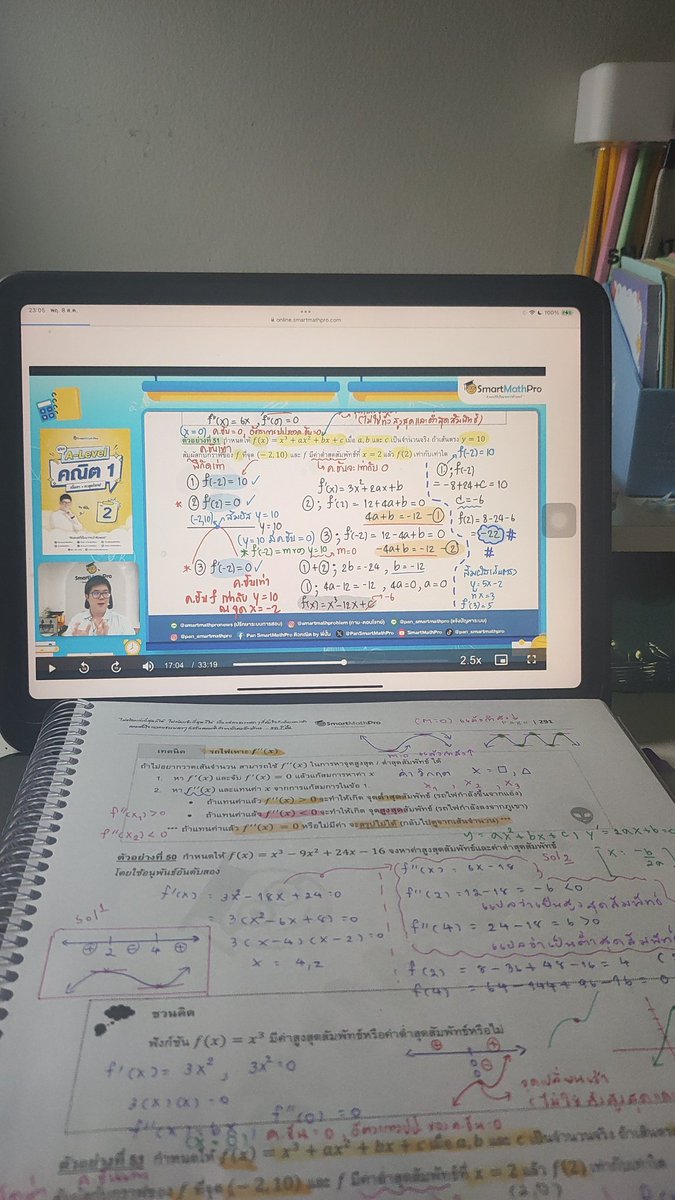 23:05 พฤ. 8 ส.ค.
online.smartmathpro.com
100%
SmartMathPro
A-Level
คณิต 1
2
f''(x) = 6x, f''(0) = 0
(x=0)
ตัวอย่างที่ 51 กำหนดให้ f(x) = x³ + ax² + bx + c เมื่อ a, b และ c เป็นจำนวนจริง ถ้าเส้นตรง y = 10
สัมผัสกับกราฟของ f ที่จุด (−2, 10) และ f มีค่าต่ำสุดสัมพัทธ์ที่ x = 2 แล้ว f(2) เท่ากับเท่าใด
① f(-2) = 10 ✓
* ② f'(2) = 0 ✓
(-2,10) สัมผัส y=10
y=10
* f'(-2) = m ของ y=10, m=0
* ③ f'(-2) = 0 ✓
ค.ชันเท่า
ค.ชัน f เท่ากับ y=10
ณ จุด x=-2
ค.ชันเท่ากับ 0
f'(x) = 3x²+2ax+b
②; f'(2) = 12+4a+b = 0
4a+b = -12 -①
③; f'(-2) = 12-4a+b = 0
-4a+b = -12 -②
①+②; 2b = -24, b = -12
①; 4a-12 = -12, 4a=0, a=0
f(x) = x³-12x+c
-6
f(-2) = 10
①; f(-2)
= -8+24+c = 10
c = -6
f(2) = 8-24-6
= -22 #
#
y = 5x-2
x=3
f'(3) = 5
@smartmathpronews (ปรึกษาระบบการสอบ) @smartmathproblem (ถาม-ตอบโจทย์) @pan_smartmathpro (แจ้งปัญหาระบบ)
@pan_smartmathpro Pan SmartMathPro ติวคณิต by พี่ปั้น @Pan_SmartMathPro SmartMathPro @pan_smartmathpro
17:04 / 33:19
2.5x
SmartMathPro
(m=0)
| 291
เทคนิค รถไฟเหาะ f''(x)
ถ้าไม่อยากวาดเส้นจำนวน สามารถใช้ f''(x) ในการหาจุดสูงสุด / ต่ำสุดสัมพัทธ์ ได้
1. หา f'(x) และจับ f'(x) = 0 แล้วแก้สมการหาค่า x
ค่าวิกฤต x = □, △
2. หา f''(x) และแทนค่า x จากการแก้สมการในข้อ 1.
x₁ x₂ x₃
f''(x₁)>0
• ถ้าแทนค่าแล้ว f''(x) > 0 จะทำให้เกิด จุดต่ำสุดสัมพัทธ์ (รถไฟกำลังขึ้นจากเหว)
f''(x₂)<0
• ถ้าแทนค่าแล้ว f''(x) < 0 จะทำให้เกิด จุดสูงสุดสัมพัทธ์ (รถไฟกำลังลงจากภูเขา)
*** ถ้าแทนค่าแล้ว f''(x) = 0 หรือไม่มีค่า จะสรุปไม่ได้ (กลับไปดูจากเส้นจำนวน) ***
y = ax²+bx+c, y' = 2ax+b
x = -b/2a
ตัวอย่างที่ 50 กำหนดให้ f(x) = x³ − 9x² + 24x − 16 จงหาค่าสูงสุดสัมพัทธ์และค่าต่ำสุดสัมพัทธ์
โดยใช้อนุพันธ์อันดับสอง
sol 2
f''(x) = 6x-18
f'(x) = 3x²-18x+24 = 0
f''(2) = 12-18 = -6 <0
แปลว่าเป็นสูงสุดสัมพัทธ์
sol 1
= 3(x²-6x+8) = 0
f''(4) = 24-18 = 6 >0
แปลว่าเป็นต่ำสุดสัมพัทธ์
3(x-4)(x-2) = 0
⊕ 2 ⊖ 4 ⊕
x = 4,2
f(2) = 8-36+48-16 = 4
f(4) = 64-144+96-16 = 0
ชวนคิด
ฟังก์ชัน f(x) = x³ มีค่าสูงสุดสัมพัทธ์หรือค่าต่ำสุดสัมพัทธ์หรือไม่
f'(x) = 3x², 3x² = 0
3(x)(x) = 0
จุดเปลี่ยนเว้า
f''(x) = 6x
f''(0) = 0
(x=0) ค.ชัน = 0
ตัวอย่างที่ 51 กำหนดให้ f(x) = x³ + ax² + bx + c เมื่อ a, b และ c เป็นจำนวนจริง ถ้าเส้นตรง
สัมผัสกับกราฟของ f ที่จุด (−2, 10) และ f มีค่าต่ำสุดสัมพัทธ์ที่ x = 2 แล้ว f(2) เท่ากับเท่าใด